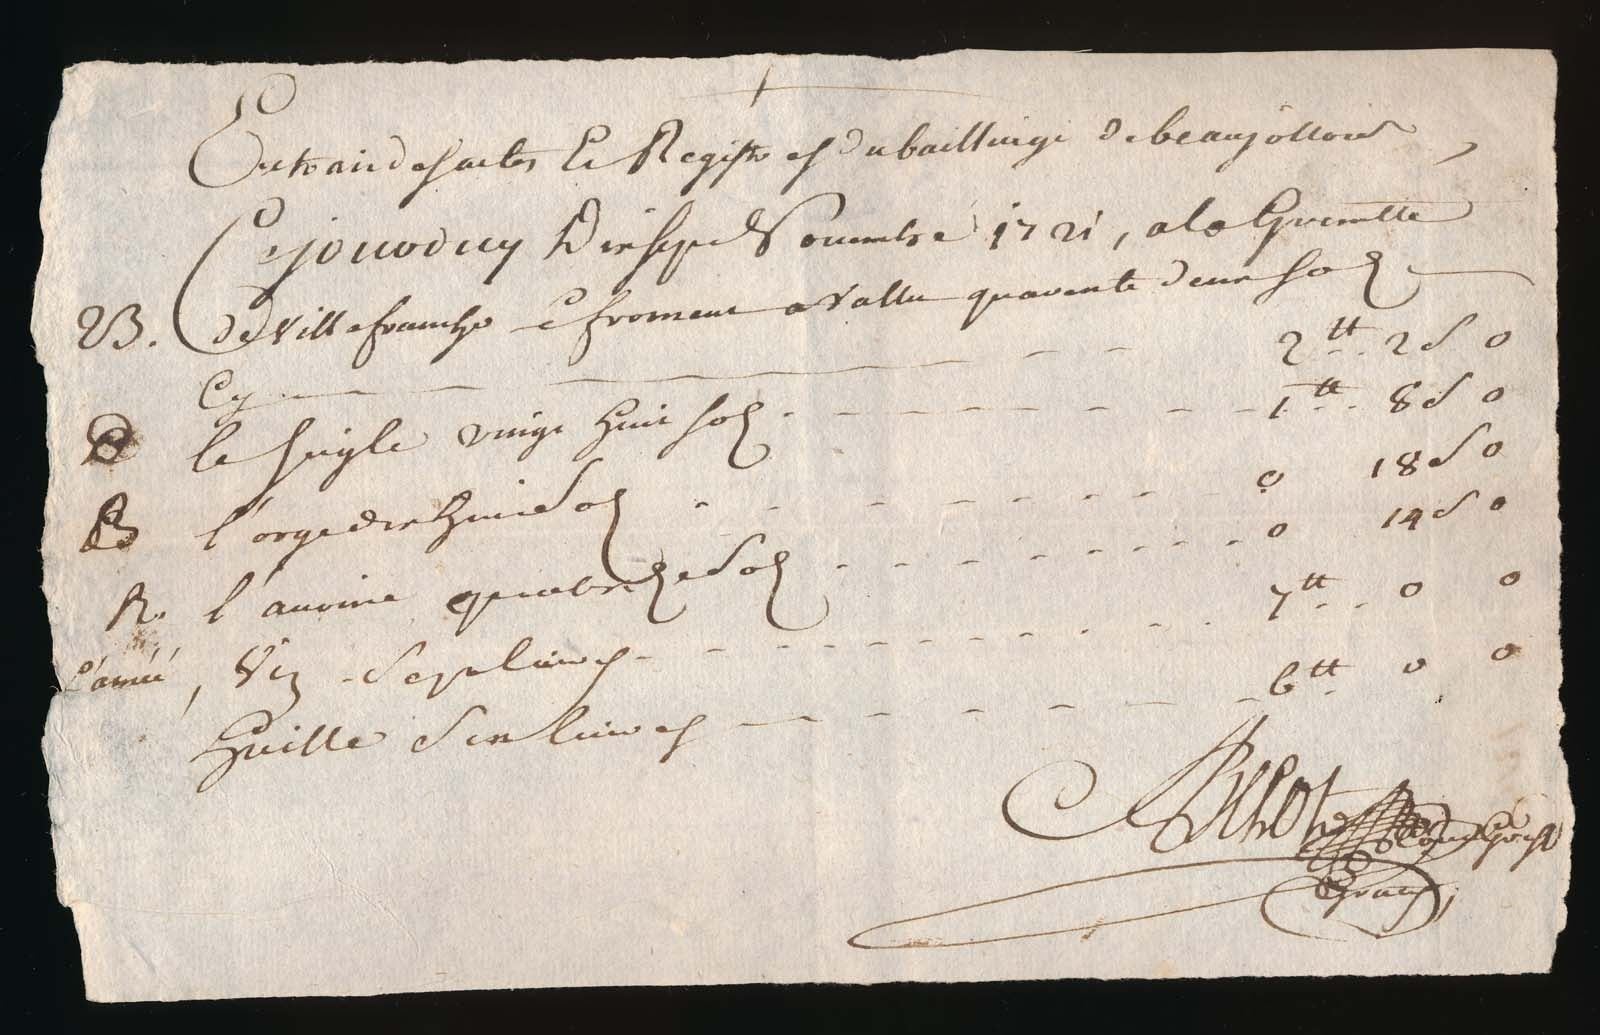 Extraict des actes Et Registres du bailliage de beaujollois
Cejourdhuy Dixsept Novembre 1721, a la Grenette
2B. de villefranche le froment a vallu quarente deux sols
Cy 2tt 2 s 0
le seigle vingt huit sols 1tt 8 s 0
B l'orge dix huit sols 0 18 s 0
R. l'avoine quatorze sols 0 14 s 0
L'année, vin sept livres 7tt 0 0
huille six livres 6tt 0 0